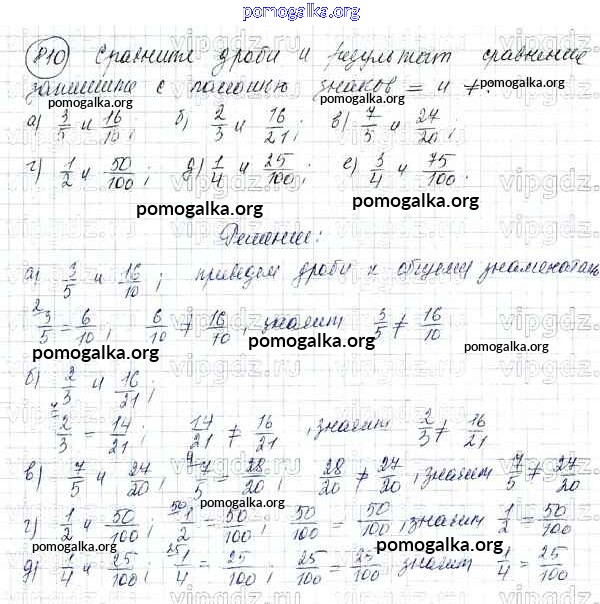 pomogalka.org
810 Сравните дроби и результат сравнения
запишите с помощью знаков = и ≠.
pomogalka.org pomogalka.org
а) 3/5 и 16/10; б) 2/3 и 16/21; в) 7/5 и 24/20;
г) 1/2 и 50/100; д) 1/4 и 25/100; е) 3/4 и 75/100.
pomogalka.org pomogalka.org
Решение:
а) 3/5 и 16/10; приведем дроби к общему знаменателю
2 3/5 = 6/10, 6/10 ≠ 16/10, значит 3/5 ≠ 16/10
pomogalka.org pomogalka.org
б) 2/3 и 16/21;
7 2/3 = 14/21; 14/21 ≠ 16/21, значит 2/3 ≠ 16/21
pomogalka.org
в) 7/5 и 24/20; 4 7/5 = 28/20; 28/20 ≠ 27/20, значит 7/5 ≠ 27/20
pomogalka.org
г) 1/2 и 50/100; 50 1/2 = 50/100; 50/100 = 50/100, значит 1/2 = 50/100
pomogalka.org pomogalka.org
д) 1/4 и 25/100; 25 1/4 = 25/100; 25/100 = 25/100 значит 1/4 = 25/100